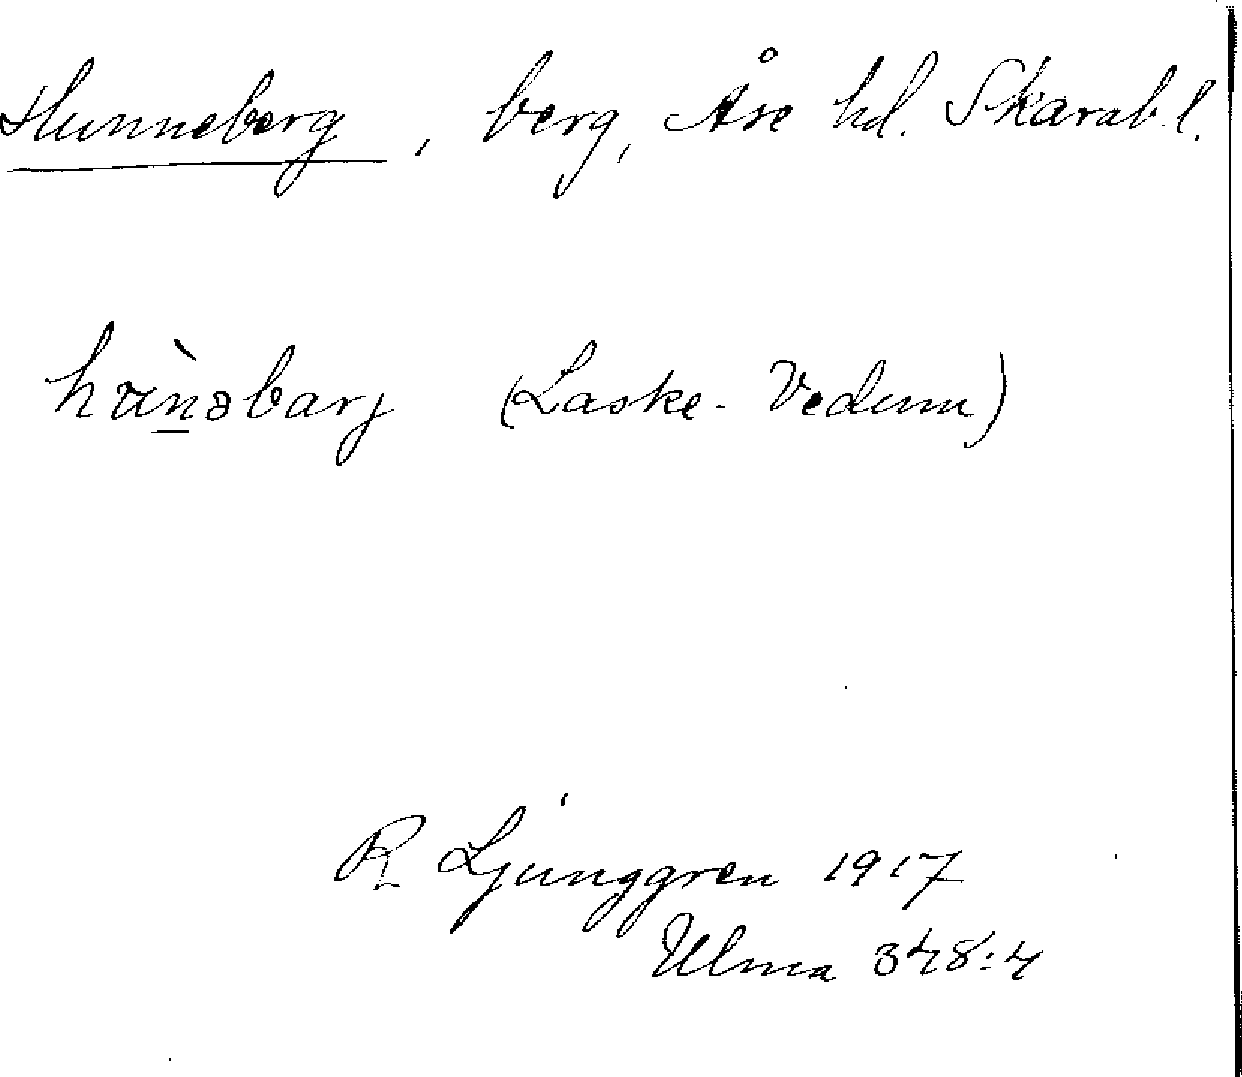 Hunneberg, berg, Åse hd. Skarab. l.
hu̇̀nəbarj (Laske-Vedum)
R Ljunggren 1917
Ulma 348:4